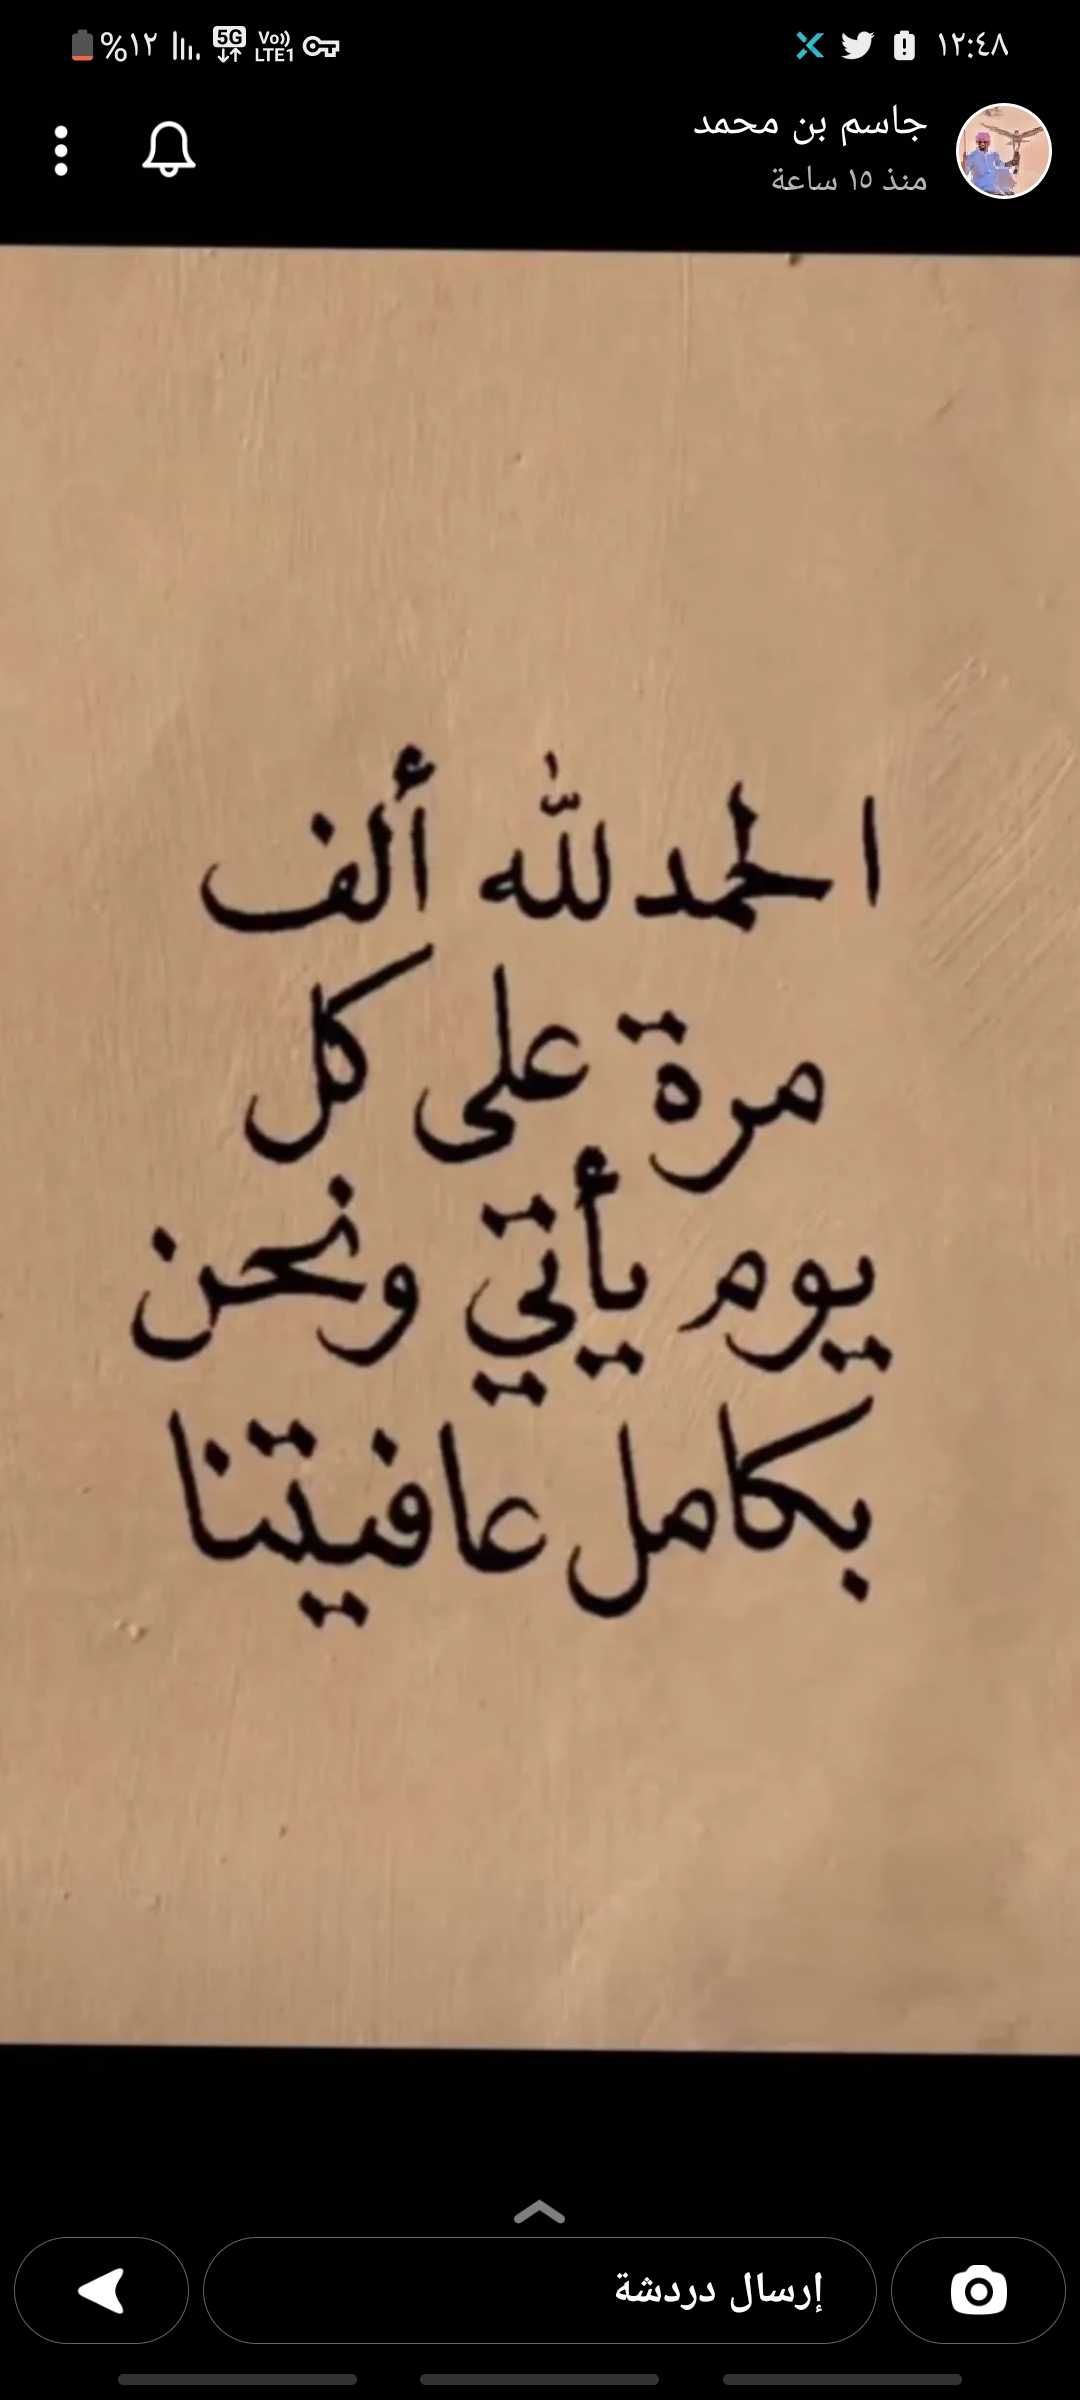 ١٢:٤٨
%١٢
5G
Vo))
LTE1
جاسم بن محمد
منذ ١٥ ساعة
الحمدلله ألف
مرة على كل
يوم يأتي ونحن
بكامل عافيتنا
إرسال دردشة